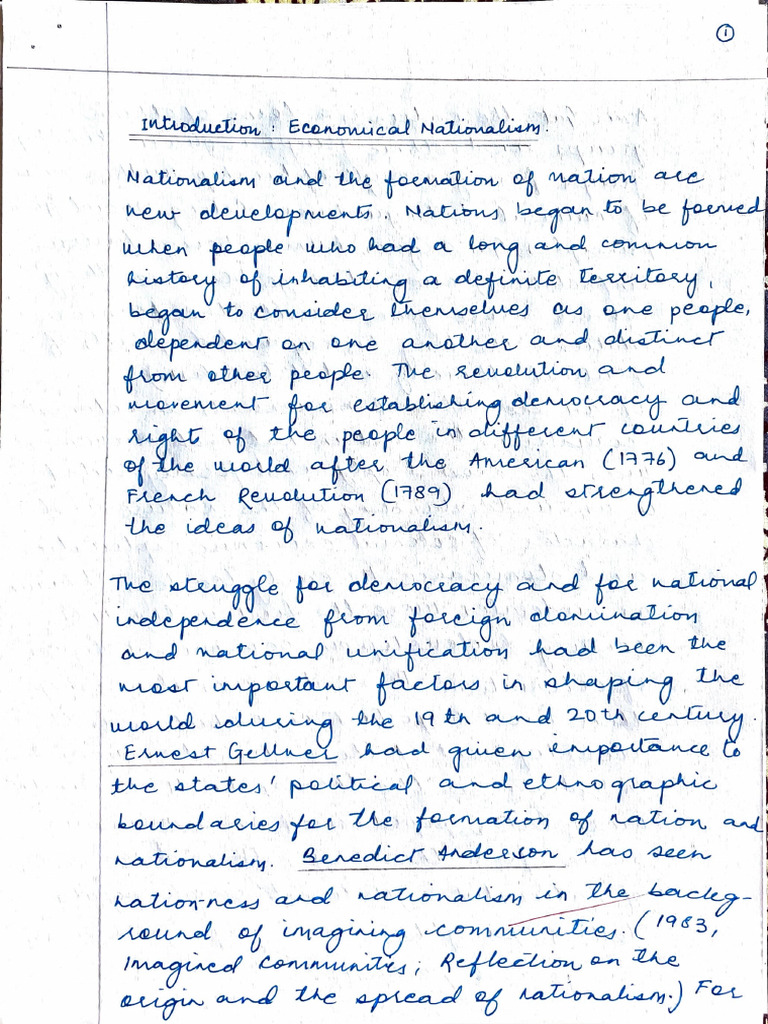 1
Introduction : Economical Nationalism.
Nationalism and the formation of nation are
new developments. Nations began to be formed
when people who had a long and common
history of inhabiting a definite territory,
began to consider themselves as one people,
dependent on one another and distinct
from other people. The revolution and
movement for establishing democracy and
right of the people in different countries
of the world after the American (1776) and
French Revolution (1789) had strengthened
the ideas of nationalism.
The struggle for democracy and for national
independence from foreign domination
and national unification had been the
most important factors in shaping the
world during the 19th and 20th century.
Ernest Gellner had given importance to
the states' political and ethnographic
boundaries for the formation of nation and
nationalism. Benedict Anderson has seen
nation-ness and nationalism in the backg-
round of imagining communities. (1983,
Imagined Communities; Reflection on the
origin and the spread of nationalism.) For